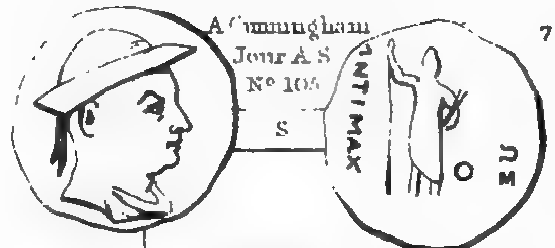 A Cunningham
Jour A S
Nº 105
S
7
ANTIMAX
O
ΩΣ